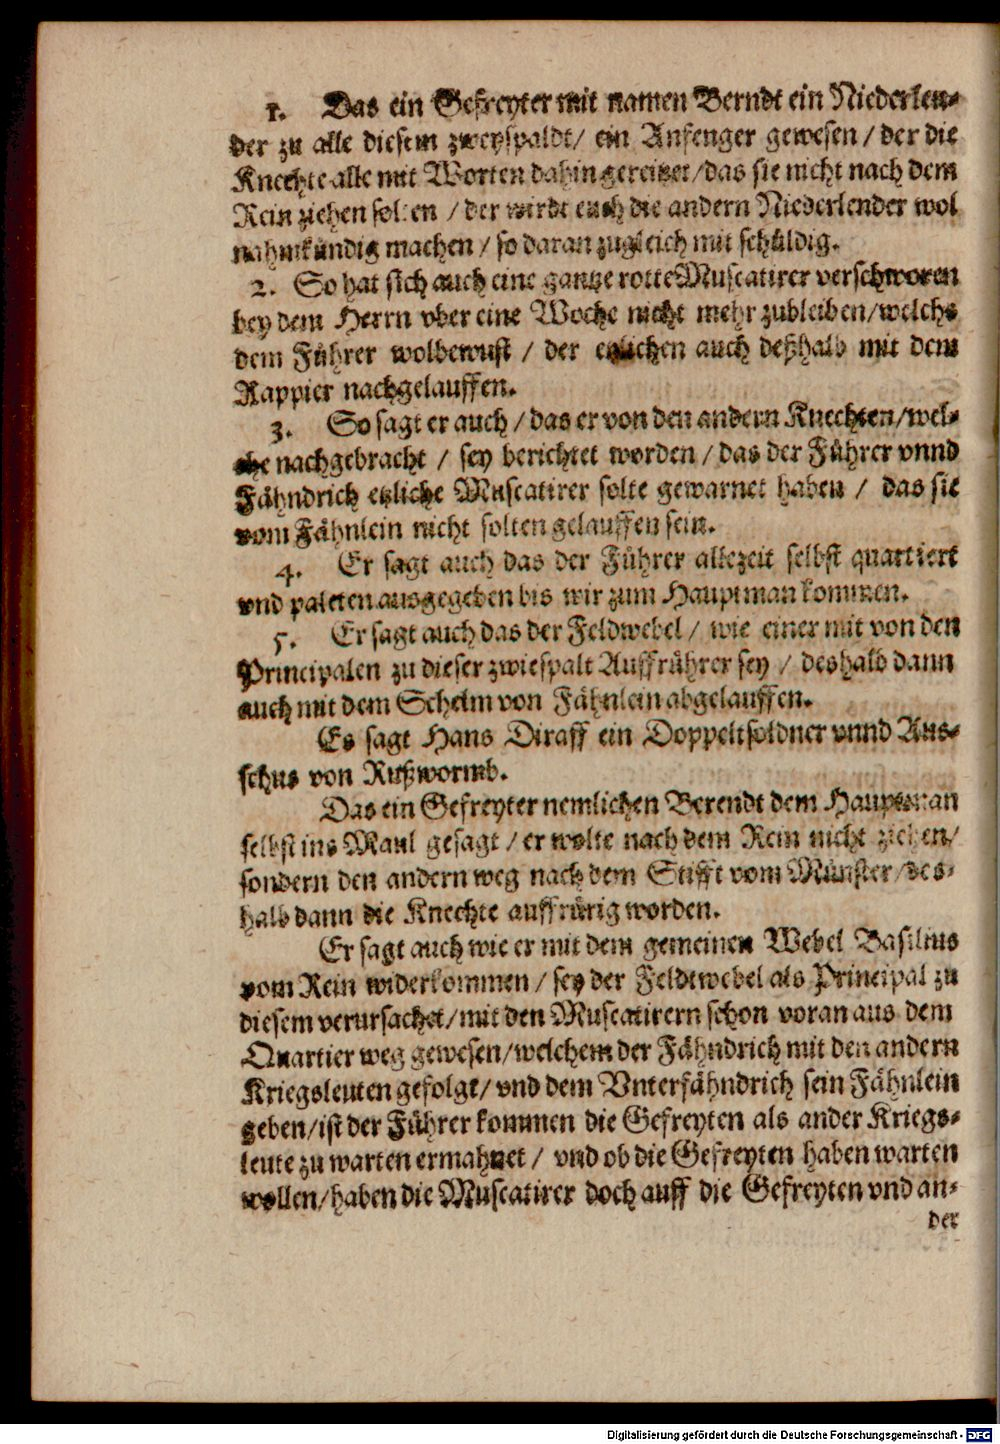 1. Das ein Gefreyter mit namen Berndt ein Niederlen-
der zu alle diesem zweyspaldt/ ein Anfenger gewesen/ der die
Knechte alle mit Worten dahin gereitzet/das sie nicht nach dem
Rein ziehen solten / der wirdt euch die andern Niederlender wol
nahmkündig machen / so daran zugleich mit schüldig.
2. So hat sich auch eine gantze rotte Muscatirer verschworen
bey dem Herrn vber eine Woche nicht mehr zubleiben/welchs
dem Führer wolbewust / der etzlichen auch deßhalb mit dem
Rappier nachgelauffen.
3. So sagt er auch / das er von den andern Knechten/wel-
che nachgebracht / sey berichtet worden / das der Führer vnnd
Fähndrich etzliche Muscatirer solte gewarnet haben / das sie
vom Fähnlein nicht solten gelauffen sein.
4. Er sagt auch das der Führer allezeit selbst quartiert
vnd paleten ausgegeben bis wir zum Hauptman kommen.
5. Er sagt auch das der Feldwebel / wie einer mit von den
Principalen zu dieser zwiespalt Auffrührer sey / deshalb dann
auch mit dem Schelm von Fähnlein abgelauffen.
Es sagt Hans Diraff ein Doppeltsoldner vnnd Aus-
schus von Rußwormb.
Das ein Gefreyter nemlichen Berendt dem Hauptman
selbst ins Maul gesagt / er wolte nach dem Rein nicht ziehen/
sondern den andern weg nach dem Stifft vom Münster /des-
halb dann die Knechte auffrürig worden.
Er sagt auch wie er mit dem gemeinen Webel Basilius
vom Rein widerkommen / sey der Feldtwebel als Principal zu
diesem verursachet/mit den Muscatirern schon voran aus dem
Quartier weg gewesen/welchem der Fähndrich mit den andern
Kriegsleuten gefolgt/ vnd dem Vnterfähndrich sein Fähnlein
geben/ist der Führer kommen die Gefreyten als ander Kriegs-
leute zu warten ermahnet / vnd ob die Gefreyten haben warten
wollen/haben die Muscatirer doch auff die Gefreyten vnd an-
der
Digitalisierung gefördert durch die Deutsche Forschungsgemeinschaft - DFG